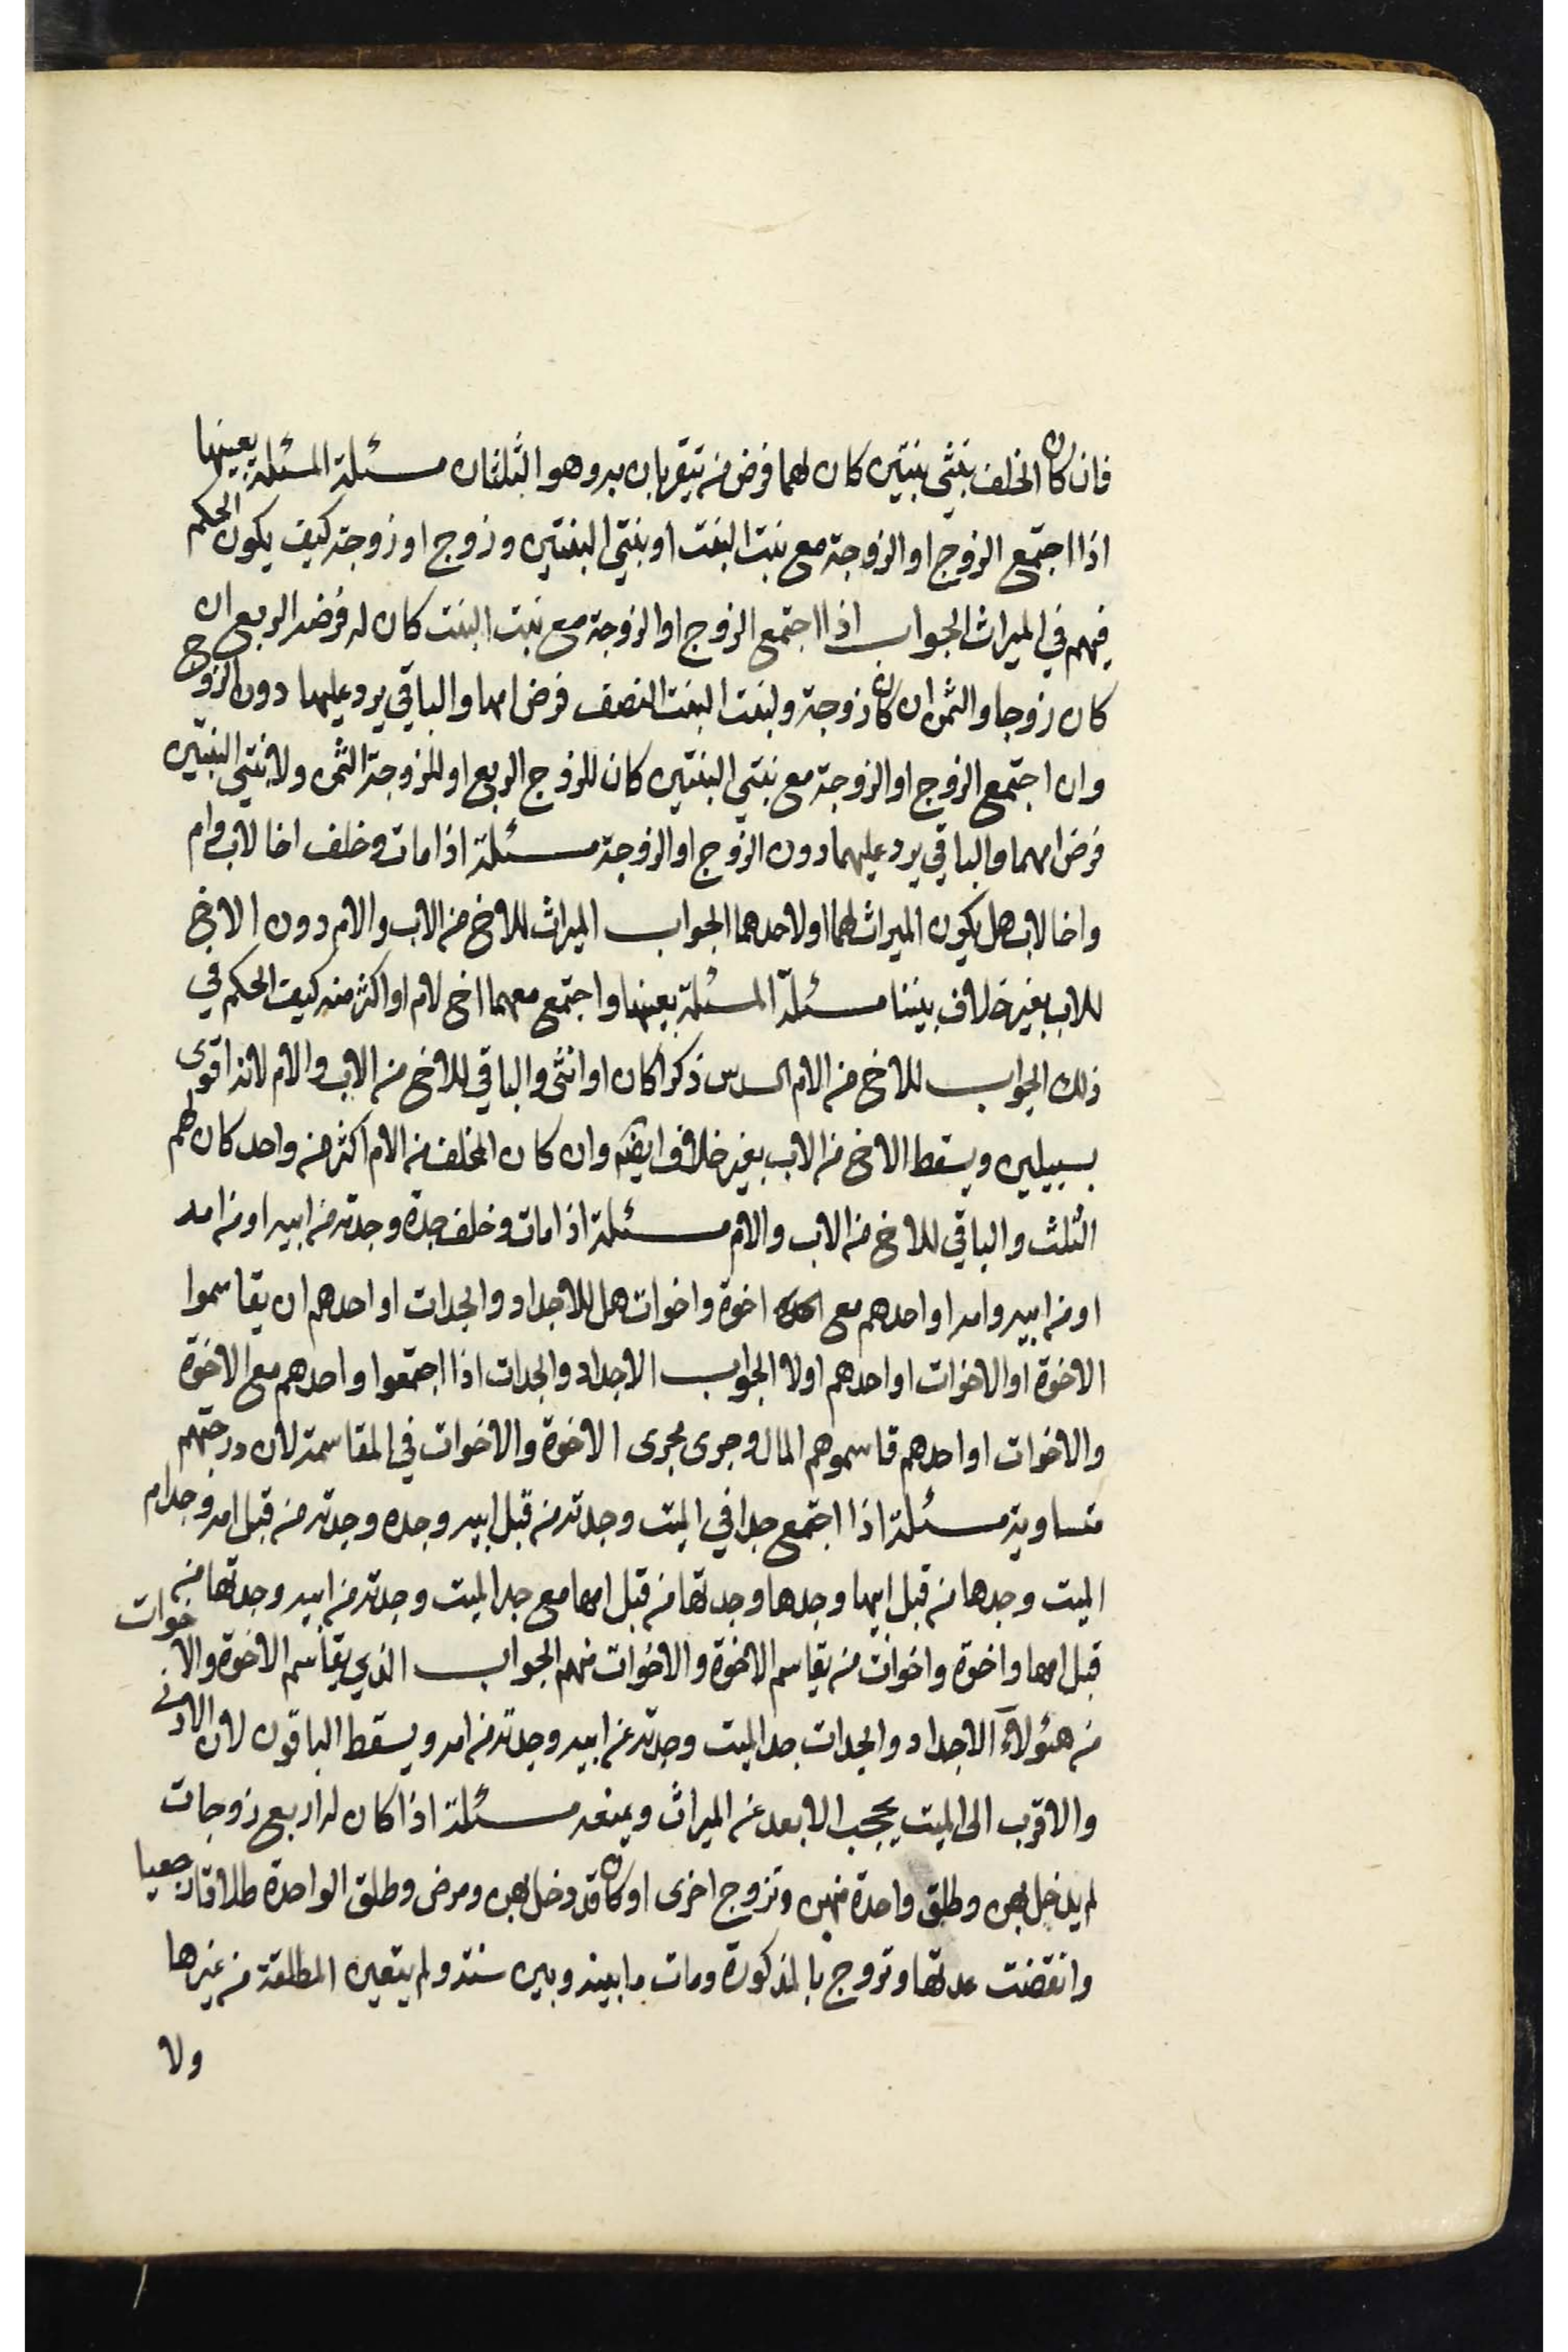 فان كان الخلف بنتي بنتين كان لهما فرض من يتقربان به وهو الثلثان مسئلة المسئلة بعينها
اذا اجتمع الزوج او الزوجة مع بنت البنت او بنتي البنتين وزوج او زوجة كيف يكون الحكم
فيهم في الميراث الجواب اذا اجتمع الزوج او الزوجة مع بنت البنت كان له فرضه الربع ان
كان زوجا والثمن ان كان زوجة ولبنت البنت النصف فرض امها والباقي يرد عليها دون الزوج
وان اجتمع الزوج او الزوجة مع بنتي البنتين كان للزوج الربع او للزوجة الثمن ولابنتي البنتين
فرض امهما والباقي يرد عليهما دون الزوج او الزوجة مسئلة اذا مات وخلف اخا لاب وام
واخا لاب هل يكون الميراث لهما او لاحدهما الجواب الميراث للاخ من الاب والام دون الاخ
للاب بغير خلاف بيننا مسئلة المسئلة بعينها واجتمع معهما اخ لام او اكثر منه كيف الحكم في
ذلك الجواب للاخ من الام السدس ذكرا كان او انثى والباقي للاخ من الاب والام لانه اقوى
بسبيلين ويسقط الاخ من الاب بغير خلاف ايضا وان كان المخلف من الام اكثر من واحد كان لهم
الثلث والباقي للاخ من الاب والام مسئلة اذا مات وخلف جده وجدته من ابيه او من امه
او من ابيه وامه او احدهم مع اخوة واخوات هل للاجداد والجدات او احدهم ان يقاسموا
الاخوة او الاخوات او احدهم اولا الجواب الاجداد والجدات اذا اجتمعوا واحدهم مع الاخوة
والاخوات او احدهم قاسموهم المال وجرى مجرى الاخوة والاخوات في المقاسمة لان درجتهم
متساوية مسئلة اذا اجتمع جد ابي الميت وجدته من قبل ابيه وجده وجدته من قبل امه وجد ام
الميت وجدها من قبل ابيها وجدها وجدتها من قبل امها مع جد الميت وجدته من ابيه وجدتها من
قبل امها واخوة واخوات من يقاسم الاخوة والاخوات منهم الجواب الذي يقاسم الاخوة والاخوات
من هؤلآء الاجداد والجدات جد الميت وجدته عن ابيه وجدته من امه ويسقط الباقون لان الادنى
والاقرب الى الميت يحجب الابعد عن الميراث ويمنعه مسئلة اذا كان له اربع زوجات
لم يدخل بهن وطلق واحدة منهن وتزوج اخرى او كان قد دخل بهن ومرض وطلق الواحدة طلاقا رجعيا
وانقضت عدتها وتزوج بالمذكورة ومات ما بينه وبين سنته ولم يتعين المطلقة من غيرها
ولا